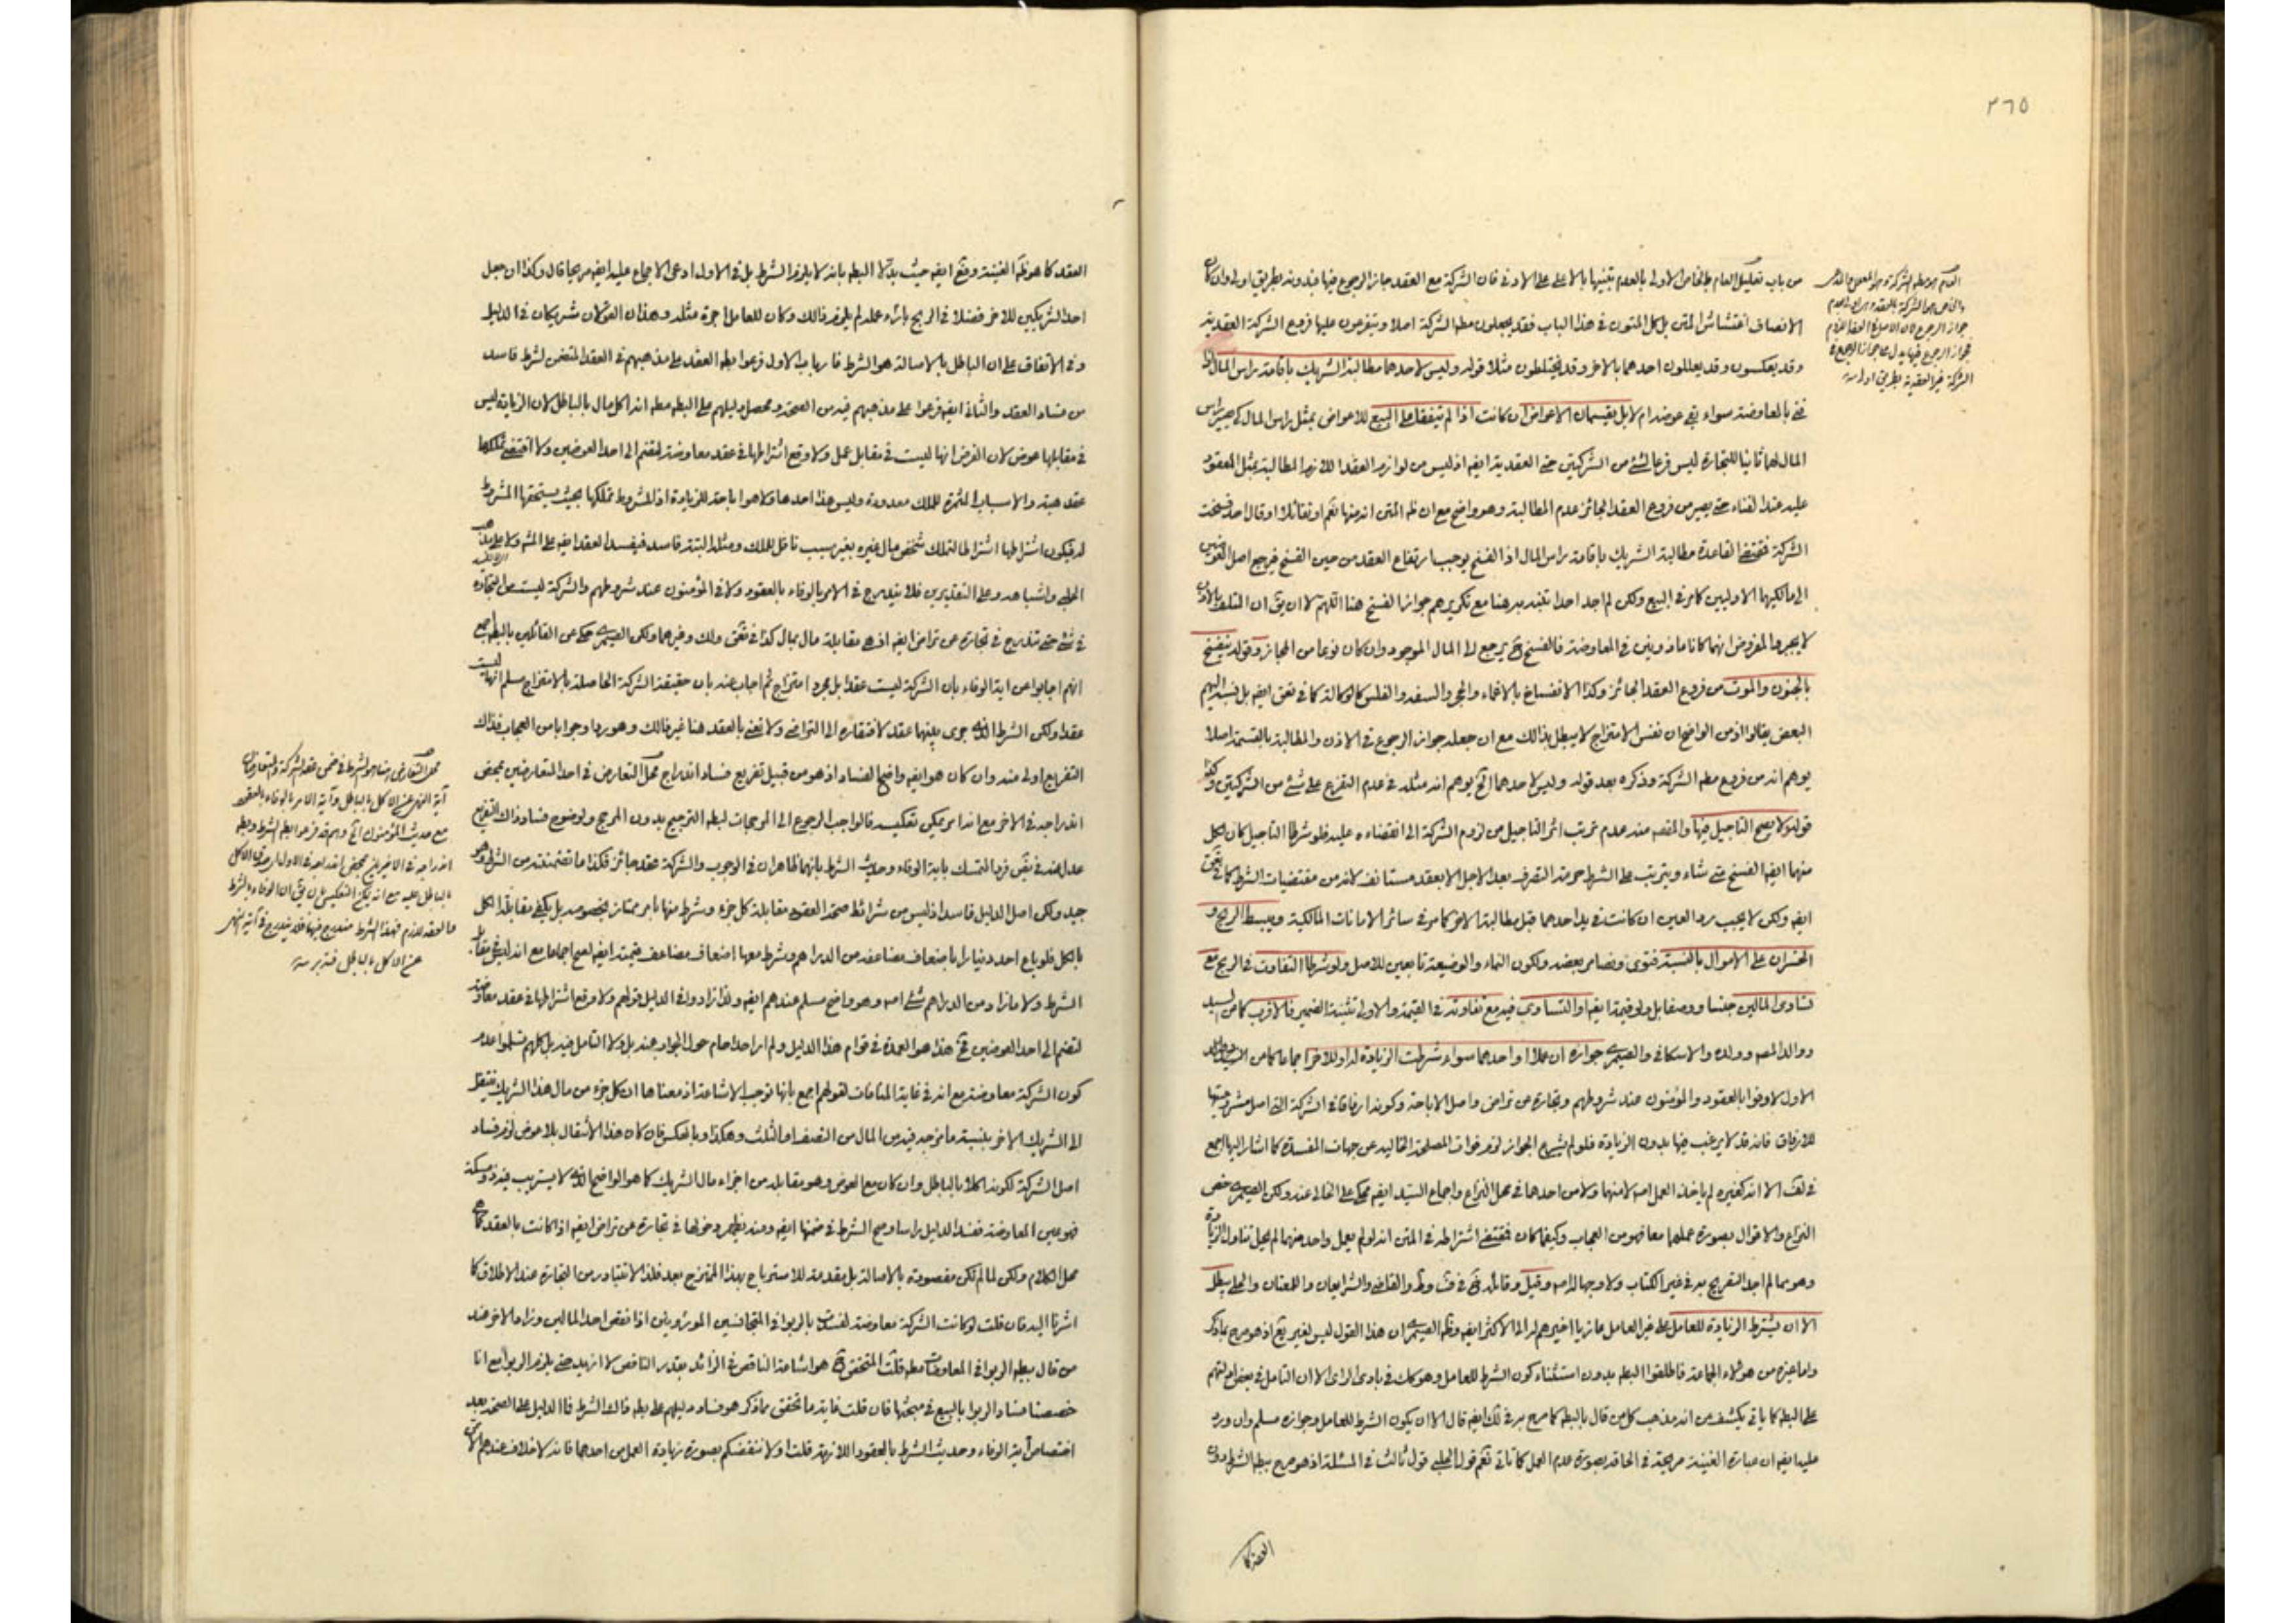 ٢٦٥
من باب تعليل العام بالخاص الاولى بالعدم تنبيها بالاعلى على الادنى فان الشركة مع العقد جايز الرجوع فيها فبدونه بطريق اولى وان كان
الانصاف اغتشاش المتن بل كل المتون في هذا الباب فقد يجعلون مطلق الشركة اصلا ويتفرعون عليها فروع الشركة العقدية
وقد يعكسون وقد يعللون احدهما بالاخر وقد يختلطون مثلا قوله وليس لاحدهما مطالبة الشريك باقامة راس المال
بالمعاوضة سواء بقى عوضه ام لا بل يقتسمان الاعواض ان كانت اذا لم يتفقا على البيع للاعواض بمثل راس المال
المال لهما ثانيا للتجارة ليس فرعا لشئ من الشركتين حتى العقدية ايضه اذ ليس من لوازم العقد اللازم المطالبة بمثل المعقود
عليه عند الفناء حتى يصير من فروع العقد الجائز عدم المطالبة وهو واضح مع ان ظه المتن انه منها نعم لو تقائلا او قال احد فسخت
الشركة فمقتضى القاعدة مطالبة الشريك باقامة راس المال اذ الفسخ يوجب ارتفاع العقد من حين الفسخ فيرجع اصل العوضين
الى مالكيها الاوليين كما مر في البيع ولكن لم اجد احدا تنبه به هنا مع تكريرهم جواز الفسخ هنا اللهم الا ان يق ان التلف بالاذن
لا يجبر والمفروض انهما كانا ماذونين في المعاوضة فالفسخ ح يرجع الى المال الموجود وان كان نوعا من المجاز وقوله ينفسخ
بالجنون والموت من فروع العقد الجائز وكذا الانفساخ بالاغماء والحجر والسفه والفلس كالوكالة كما في
البعض يقالوا اذ من الواضح ان نفس الامتزاج لا يبطل بذالك مع ان جعله جواز الرجوع في الاذن والمطالبة بالقسمة اصلا
يوهم انه من فروع مطه الشركة وذكره بعد قوله وليس لاحدهما الخ يوهم انه مثله في عدم التفرع على شئ من الشركتين وكذا
قوله ولا يصح التاجيل فيها والمقصه منه عدم ترتب اثر التاجيل من لزوم الشركة الى انقضاءه عليه فلو شرطا التاجيل كان لكل
منهما ايضه الفسخ متى شاء ويترتب على الشرط حرمة التصرف بعد الاجل الا بعقد مستانف لانه من مقتضيات الشرط كما في
ايضه ولكن لا يجب رد العين ان كانت في يد احدهما قبل مطالبة الاخر كما مر في سائر الامانات المالكية ويبسط الربح و
الخسران على الاموال بالنسبة فتوى ونصا مر بعضه ولكون النماء والوضيعة تابعين للاصل ولو شرطا التفاوت في الربح مع
تساوى المالين جنسا ووصفا بل وقيمة ايضه او التساوي فيه مع تفاوته في القيمة والاولى تثنية الضمير فالاقرب كما من السيد
ووالد المصه وولده والاسكافي والصيمرى جوازه ان عملا او احدهما سواء شرطت الزيادة له او للاخر اجماعا كما من السيد
الاول لاوفوا بالعقود والمؤمنون عند شروطهم وتجارة عن تراض واصل الاباحة وكونه ارفاقا في الشركة التى اصل مشروعيتها
للارفاق فانه قد لا يرغب فيها بدون الزيادة فلو لم يشرع الجواز لزم فوات المصلحة الخالية عن جهات المفسدة كما اشار اليها اجمع
في لف الا انه كغيره لم ياخذ العمل اصه لا منهما ولا من احدها في محل النزاع واجماع السيد ايضه محكى على الخالى عنه ولكن الصيمرى خص
النزاع والاقوال بصورة عملهما معا فهو من العجاب وكيفما كان فمقتضى اشتراطه في المتن انه لو لم يعمل واحد منهما لم يحل تناول الزيادة
وهو مما لم اجد التفريح به في غير الكتاب ولا وجها له اصه وقيل وقائله ح في ف وط والقاضى والشرايعان واللمعتان والحلى يبطل
الا ان يشترط الزيادة للعامل على غير العامل ما زيا اخيرهم له الى الاكثر ايضه وظه الصيمرى ان هذا القول ليس لغير يع اذ هو صرح بماذكر
واما غيره من هؤلاء الجماعة فاطلقوا البطه بدون استثناء كون الشرط للعامل وهو كك في بادى الراى الا ان التامل في بعض ادلتهم
على البطه كما ياتي يكشف من انه مذهب كل من قال بالبطه كما صرح به في لك ايضه قال الا ان يكون الشرط للعامل وجوازه مسلم وان ورد
عليه ايضه ان عبارة الغنية صريحة في الحاقه بصورة عدم العمل كما تاتي نعم قول الحلبى قول ثالث في المسئلة اذ هو صرح ببطه الشرط دون
العقد كا
العقد كما هو ظه الغنية وقع ايضه حيث بدلا البطه بانه لا يلزم الشرط بل في الاول ادعى الاجماع عليه ايضه صريحا قال وكذا ان جعل
احد الشريكين للاخر فضلا في الربح بازاء عمله لم يلزم ذالك وكان للعامل اجرة مثله وهذان القولان شريكان في الدليل
وفي الاتفاق على ان الباطل بالاصالة هو الشرط فارباب الاول فرعوا بطه العقد على مذهبهم في العقد المتضمن لشرط فاسد
من فساد العقد والثانى ايضه فرعوا على مذهبهم فيه من الصحة ومحصل دليلهم على البطه مطه انه اكل مال بالباطل لان الزيادة ليس
في مقابلها عوض لان الفرض انها ليست في مقابل عمل ولا وقع اشتراطها في عقد معاوضة لتضم الى احد العوضين ولا اقتضى تملكها
عقد هبة والاسباب المثمرة للملك معدودة وليس هذا احدها ولا هو اباحة للزيادة اذ المشروط تملكها بحيث يستحقها المشروط
له فيكون اشتراطها اشتراطا لتملك شخص مال غيره بغير سبب ناقل للملك ومثله البتة فاسد فيفسد العقد ايضه على المشه ولا على مذهب
الحلى واشباهه وعلى التقديرين فلا يندرج في الامر بالوفاء بالعقود ولا في المؤمنون عند شروطهم والشركة ليست من التجارة
في شئ حتى تندرج في تجارة عن تراض ايضه اذ هى مقابلة مال بمال كذا في وغيرهما ولكن الصيمرى حكى عن القائلين بالبطه اجمع
انهم اجابوا عن اية الوفاء بان الشركة ليست عقدا بل مجرد امتزاج ثم اجاب عنه بان حقيقة الشركة الحاصلة بالامتزاج مسلم انها ليست
عقدا ولكن الشرط الذى جرى بينهما عقد لافتقاره الى التراضى ولا نعنى بالعقد هنا غير ذالك وهو ردا وجوابا من العجاب فذاك
التفريع اولى منه وان كان هو ايضه واضح الفساد اذ هو من قبيل تفريع فساد اندراج محل التعارض في احد التعارضين بمحض
اندراجه في الاخر مع انه امر يمكن تعكيسه فالواجب الرجوع الى الموجبات لبطه الترجيح بدون المرجح ولوضوح فساد ذاك التفريع
عدل عنه في فرد التمسك باية الوفاء وحديث الشرط بانهما ظاهران في الوجوب والشركة عقد جائز فكذا ما تضمنته من الشرط وهو
جيد ولكن اصل الدليل فاسد اذ ليس من شرائط صحة العقود مقابلة كل جزء وشرط منها بامر ممتاز بخصوصه بل يكفى مقابلة الكل
بالكل فلو باع احد دينارا باضعاف مضاعفة من الدراهم وشرط معها اضعاف مضاعف قيمته ايضه لصح اجماعا مع انه ليس في مقابل
الشرط ولا ما زاد من الدراهم شئ اصه وهو واضح مسلم عندهم ايضه ولذا زادوا في الدليل قولهم ولا وقع اشتراطها في عقد معاوضة
لتضم الى احد العوضين فح هذا هو العمدة في قوام هذا الدليل ولم ار احدا حام حول الجواب عنه بل ولا التامل فيه بل كلهم تسلموا عدم
كون الشركة معاوضة مع انه في غاية المنافات لقولهم اجمع بانها توجب الاشاعة اذ معناها ان كل جزء من مال هذا الشريك ينتقل
الى الشريك الاخر بنسبة ما يوجد فيه من المال من النصف او الثلث وهكذا وبالعكس فان كان هذا الانتقال بلا عوض لزم فساد
اصل الشركة لكونه اكلا بالباطل وان كان مع العوض وهو مقابله من اجزاء مال الشريك كما هو الواضح الذى لا يستريب فيه ذو مسكة
فهو عين المعاوضة ففسد الدليل راسا وصح الشرط في ضمنها ايضه ومنه يظهر دخولها في تجارة عن تراض ايضه اذا كانت بالعقد كما هو
محل الكلام ولكن لما لم تكن مقصودة بالاصالة بل مقدمة للاسترباح بهذا الممتزج بعد فلذا لا تتبادر من التجارة عند الاطلاق كما
اشرنا اليه فان قلت لو كانت الشركة معاوضة لفسدت بالربوا في المتجانسين الموزونين اذا نقص احد المالين وزاد الاخر عند
من قال ببطه الربوا في المعاوضات مطه قلت المتحقق ح هو اشاعة الناقص في الزائد بقدر الناقص لا ازيد حتى يلزم الربوا مع انا
خصصنا فساد الربوا بالبيع في مبحثها فان قلت غاية ما تحقق مماذكر هو فساد دليلهم على بطه ذاك الشرط فما الدليل على الصحة بعد
اختصاص آية الوفاء وحديث الشرط بالعقود اللازمة قلت اولا ننقضكم بصورة زيادة العمل من احدهما فانه لا خلاف عندهم